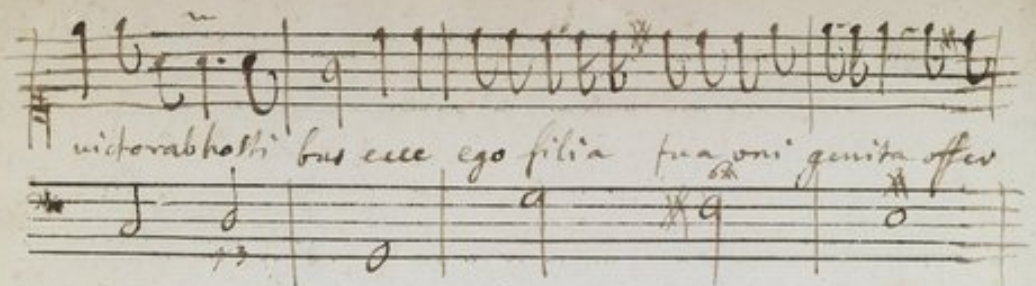 victor ab hosti bus ecce ego filia tua uni genita offer